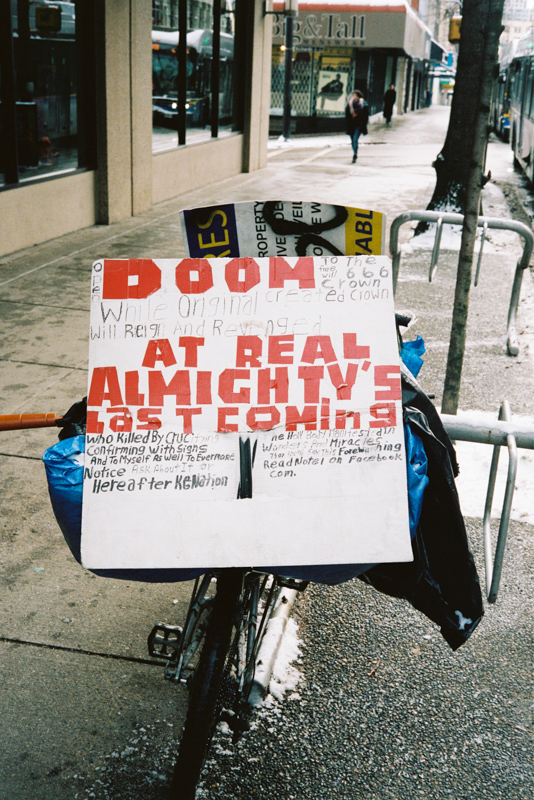 Big & Tall
RES
PROPERTY
ABLE
Omen DOOM To The
free will 666
Crown
While Original Created Crown
Will Reign And Revenged
AT REAL
ALMIGHTY'S
LasT COMinG
Who Killed By Crucifying
Confirming With Signs
And To Myself As Well To Evermore
Notice Ask About It or
Hereafter
The Half Body Manifested in
Wonders And Miracles
For This Forewarning
Read Note! on Facebook
Com.